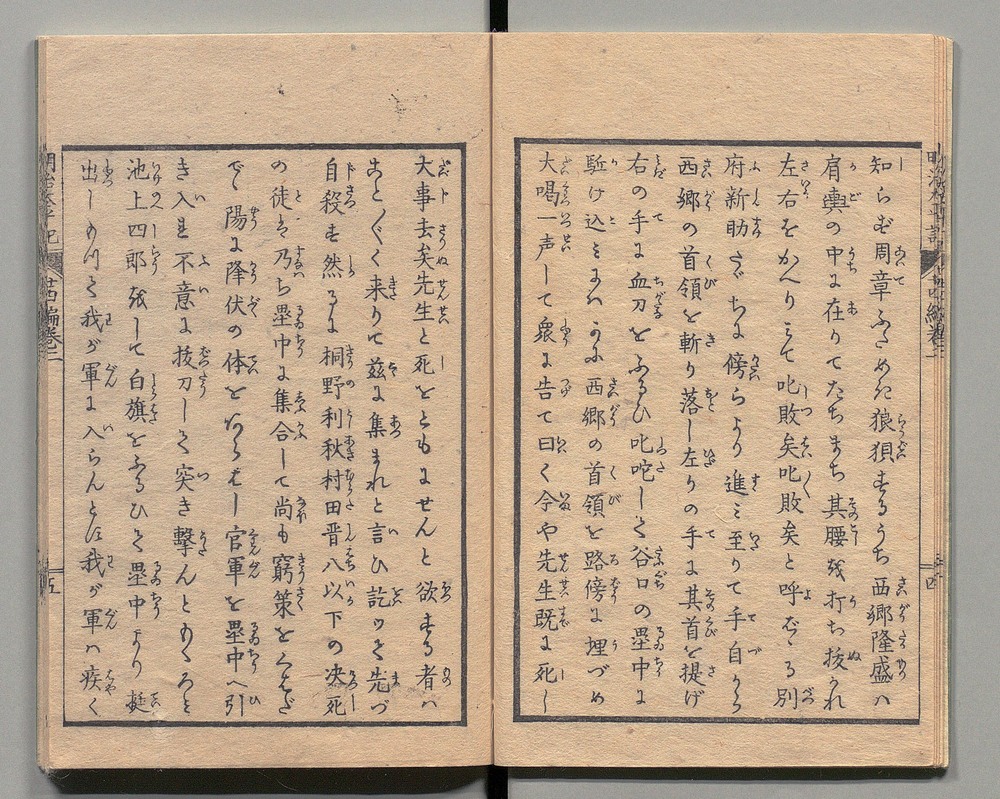 知らむ周章ふためき狼狽するうち西郷隆盛ハ
肩輿の中に在りてたちまち其腰を打ち抜かれ
左右をかへりミて叱敗矣叱敗矣と呼ばゝる別
府新助たゞちに傍らより進ミ至りて手自から
西郷の首領を斬り落し左りの手に其首を提げ
右の手に血刀をふるひ叱咤して谷口の塁中に
駈け込ミ西郷の首領を路傍に埋づめ
大喝一声して衆に告て曰く今や先生既に死し
大事去矣先生と死をともにせんと欲する者ハ
ことごとく来りて茲に集まれと言ひ訖つて先づ
自殺す然るに桐野利秋村田晋八以下の决死
の徒は乃ち塁中に集合して尚も窮策をめぐら
で陽に降伏の体をあらはし官軍を塁中へ引
き入れ不意に抜刀して突き撃んとあくると
池上四郎をして白旗をふるひて塁中より挺
出しめつゝ我が軍に入らんとは我が軍ハ疾く
明治太平記
廿四編巻二
五